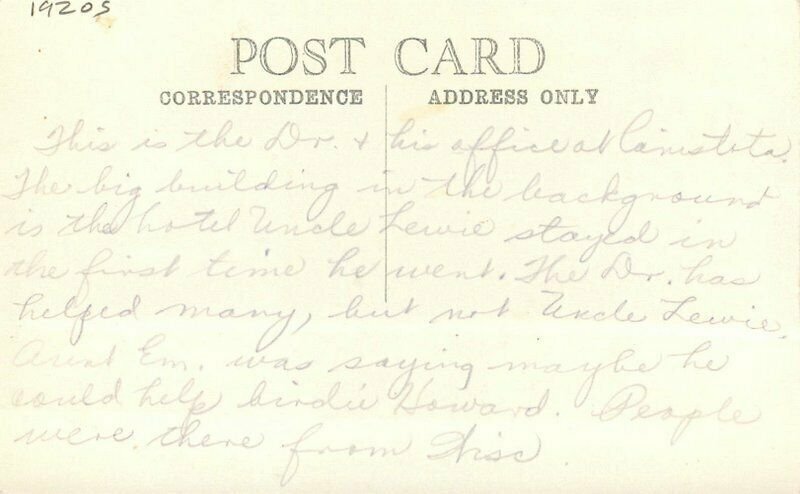 1920s
POST CARD
CORRESPONDENCE
ADDRESS ONLY
This is the Dr. & his office at Canistota.
The big building in the background
is the hotel Uncle Lewie stayed in
the first time he went. The Dr. has
helped many, but not Uncle Lewie.
Aunt Em. was saying maybe he
could help birdie Howard. People
were there from Wisc.